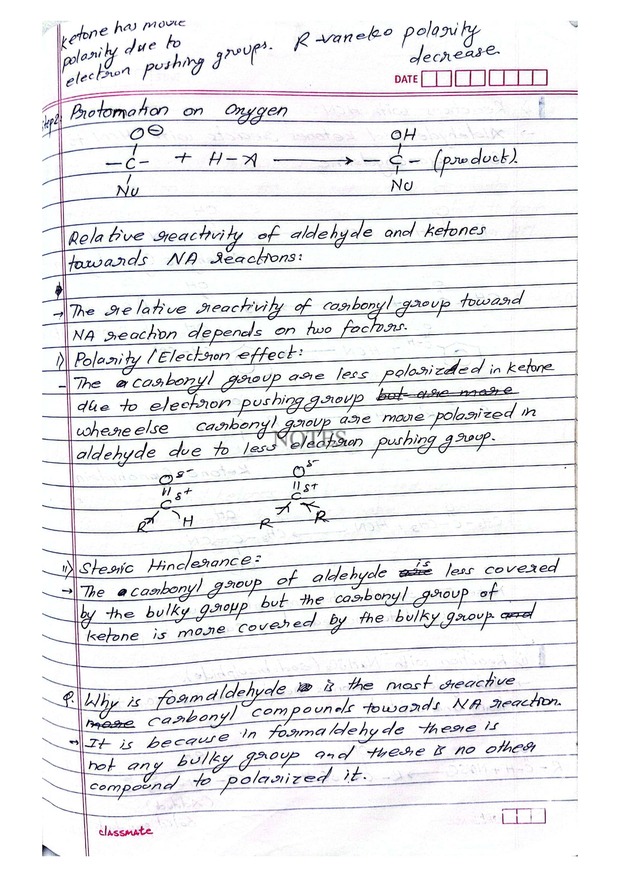 ketone has more
polarity due to
electron pushing groups. R-vaneko polarity
decrease.
DATE
Step2: Protomation on Oxygen
O⊖ OH
-C- + H-A → -C- (product).
Nu Nu
Relative reactivity of aldehyde and ketones
towards NA reactions:
→ The relative reactivity of carbonyl group toward
NA reaction depends on two factors.
i) Polarity/Electron effect:
- The carbonyl group are less polarized in ketone
due to electron pushing group but are more
whereelse carbonyl group are more polarized in
NOTES
aldehyde due to less electron pushing group.
Oδ- Oδ-
Cδ+ Cδ+
R H R R
ii) Steric Hinderance:
→ The carbonyl group of aldehyde is less covered
by the bulky group but the carbonyl group of
ketone is more covered by the bulky group and
Q. Why is formaldehyde is the most reactive
more carbonyl compounds towards NA reaction.
→ It is because in formaldehyde there is
not any bulky group and there is no other
compound to polarized it.
classmate